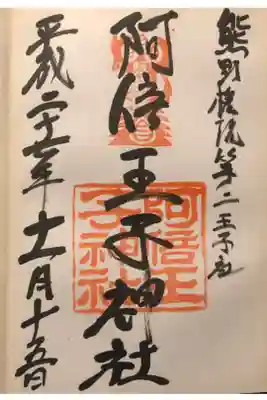 熊野権現第二王子社
阿倍王子神社
平成二十六年十一月十五日
阿倍王子神社